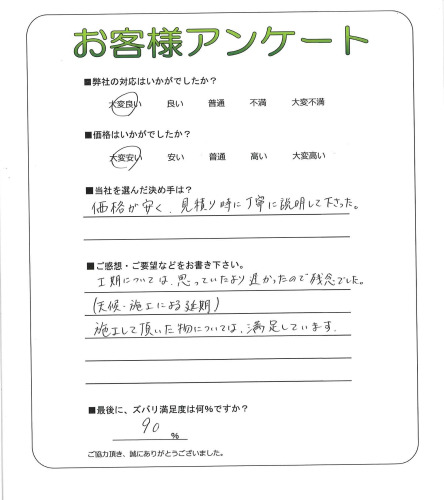 お客様アンケート
■弊社の対応はいかがでしたか？
大変良い 良い 普通 不満 大変不満
■価格はいかがでしたか？
大変安い 安い 普通 高い 大変高い
■当社を選んだ決め手は？
価格が安く、見積り時に丁寧に説明して下さった。
■ご感想・ご要望などをお書き下さい。
工期については、思っていたより遅かったので残念でした。
(天候・施工による延期)
施工して頂いた物については、満足しています。
■最後に、ズバリ満足度は何％ですか？
90 ％
ご協力頂き、誠にありがとうございました。